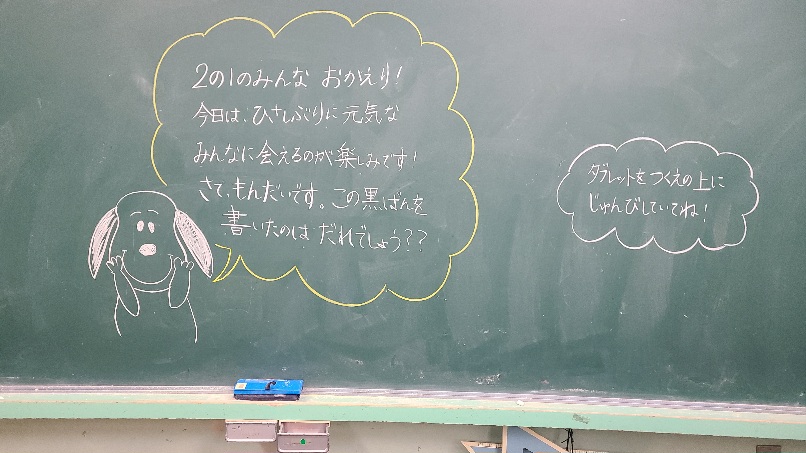 2の1のみんな おかえり！
今日は、ひさしぶりに元気な
みんなに会えるのが楽しみです！
さて、もんだいです。この黒ばんを
書いたのは だれでしょう??
タブレットをつくえの上に
じゅんびしていてね！